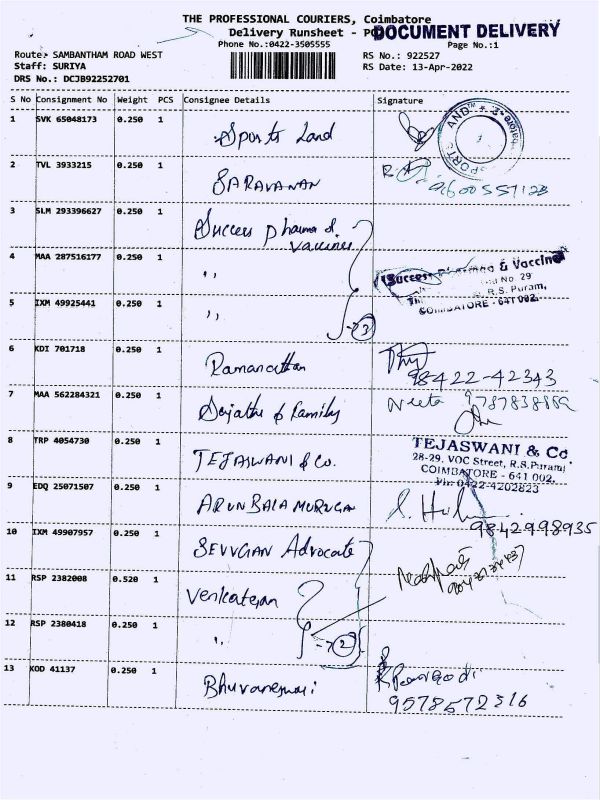 THE PROFESSIONAL COURIERS, Coimbatore
Delivery Runsheet - POD
DOCUMENT DELIVERY
Phone No.:0422-3505555
Page No.:1
Route: SAMBANTHAM ROAD WEST
RS No.: 922527
Staff: SURIYA
RS Date: 13-Apr-2022
DRS No.: DCJB92252701
S No Consignment No Weight PCS Consignee Details Signature
1 SVK 65048173 0.250 1 Sports Land
2 TVL 3933215 0.250 1 SARAVANAN
9600557123
3 SLM 293396627 0.250 1 Success Pharma &
Vaccines
4 MAA 287516177 0.250 1 ,, Success Pharma & Vaccine
No. 29
R.S. Puram,
COIMBATORE - 641 002.
5 IXM 49925441 0.250 1 ,,
3
6 KDI 701718 0.250 1 Ramanathan
98422-42343
7 MAA 562284321 0.250 1 & Family Neeta
8 TRP 4054730 0.250 1 TEJASWANI & Co. TEJASWANI & Co
28-29, VOC Street, R.S.Puram
COIMBATORE - 641 002.
Ph: 0422-4202823
9 EDQ 25071507 0.250 1 ARUN BALA MURUGAN
9842998935
10 IXM 49907957 0.250 1 Advocate
11 RSP 2382008 0.520 1 Venkatesan
12 RSP 2380418 0.250 1 ,,
2
13 KOD 41137 0.250 1 Bhuvaneswari
9578572316